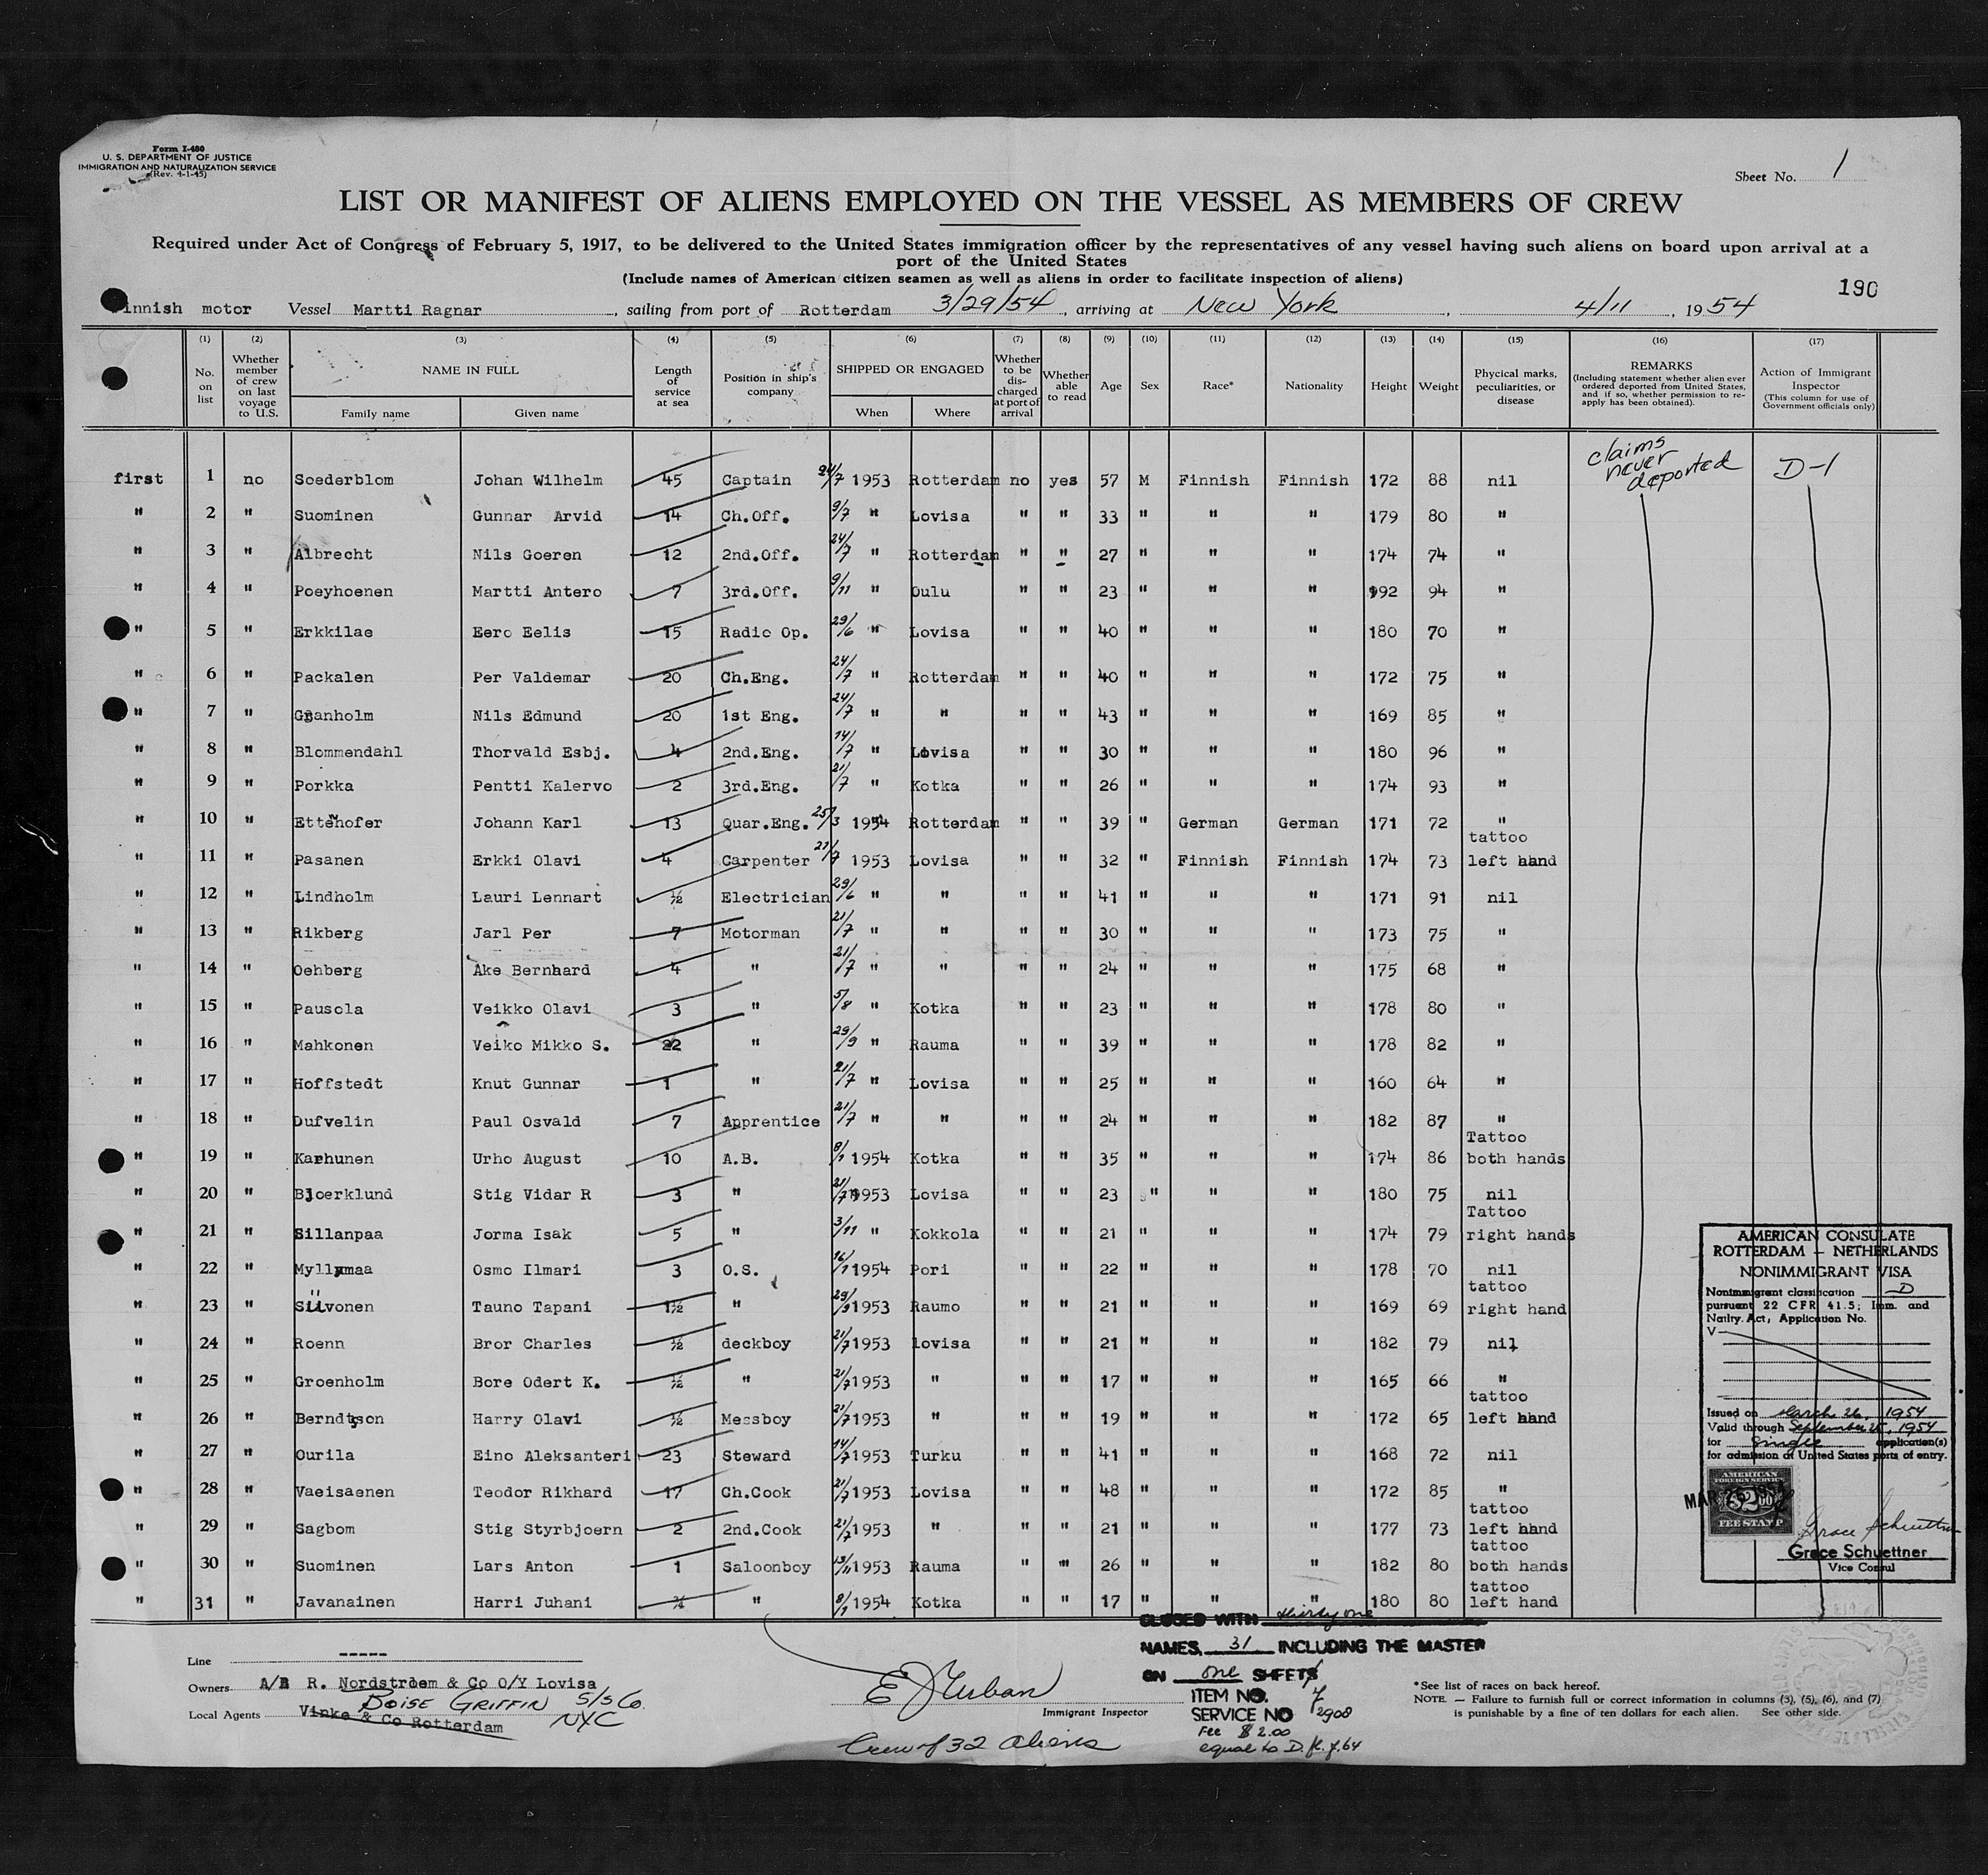 Form I-480
U. S. DEPARTMENT OF JUSTICE
IMMIGRATION AND NATURALIZATION SERVICE
(Rev. 4-1-45)
Sheet No. 1
LIST OR MANIFEST OF ALIENS EMPLOYED ON THE VESSEL AS MEMBERS OF CREW
Required under Act of Congress of February 5, 1917, to be delivered to the United States immigration officer by the representatives of any vessel having such aliens on board upon arrival at a
port of the United States
(Include names of American citizen seamen as well as aliens in order to facilitate inspection of aliens)
190
innish motor Vessel Martti Ragnar, sailing from port of Rotterdam 3/29/54, arriving at New York, 4/11, 1954
(1) (2) (3) (4) (5) (6) (7) (8) (9) (10) (11) (12) (13) (14) (15) (16) (17)
No. on list
Whether member of crew on last voyage to U.S.
NAME IN FULL
Family name
Given name
Length of service at sea
Position in ship's company
SHIPPED OR ENGAGED
When
Where
Whether to be discharged at port of arrival
Whether able to read
Age
Sex
Race*
Nationality
Height
Weight
Physical marks, peculiarities, or disease
REMARKS
(Including statement whether alien ever ordered deported from United States, and if so, whether permission to re-apply has been obtained).
Action of Immigrant Inspector
(This column for use of Government officials only)
claims never deported
D-1
first 1 no Soederblom Johan Wilhelm 45 Captain 24/7 1953 Rotterdam no yes 57 M Finnish Finnish 172 88 nil
" 2 " Suominen Gunnar Arvid 14 Ch.Off. 9/7 " Lovisa " " 33 " " " 179 80 "
" 3 " Albrecht Nils Goeren 12 2nd.Off. 24/7 " Rotterdam " " 27 " " " 174 74 "
" 4 " Poeyhoenen Martti Antero 7 3rd.Off. 9/11 " Oulu " " 23 " " " 192 94 "
" 5 " Erkkilae Eero Eelis 15 Radio Op. 29/6 " Lovisa " " 40 " " " 180 70 "
" 6 " Packalen Per Valdemar 20 Ch.Eng. 24/7 " Rotterdam " " 40 " " " 172 75 "
" 7 " Granholm Nils Edmund 20 1st Eng. 24/7 " " " " 43 " " " 169 85 "
" 8 " Blommendahl Thorvald Esbj. 4 2nd.Eng. 14/7 " Lovisa " " 30 " " " 180 96 "
" 9 " Porkka Pentti Kalervo 2 3rd.Eng. 21/7 " Kotka " " 26 " " " 174 93 "
" 10 " Ettenhofer Johann Karl 13 Quar.Eng. 25/3 1954 Rotterdam " " 39 " German German 171 72 "
" 11 " Pasanen Erkki Olavi 4 Carpenter 21/7 1953 Lovisa " " 32 " Finnish Finnish 174 73 tattoo left hand
" 12 " Lindholm Lauri Lennart ½ Electrician 29/6 " " " " 41 " " " 171 91 nil
" 13 " Rikberg Jarl Per 7 Motorman 21/7 " " " " 30 " " " 173 75 "
" 14 " Oehberg Ake Bernhard 4 " 21/7 " " " " 24 " " " 175 68 "
" 15 " Pausola Veikko Olavi 3 " 5/8 " Kotka " " 23 " " " 178 80 "
" 16 " Mahkonen Veiko Mikko S. 22 " 29/9 " Rauma " " 39 " " " 178 82 "
" 17 " Hoffstedt Knut Gunnar 1 " 21/7 " Lovisa " " 25 " " " 160 64 "
" 18 " Dufvelin Paul Osvald 7 Apprentice 21/7 " " " " 24 " " " 182 87 "
" 19 " Karhunen Urho August 10 A.B. 8/1 1954 Kotka " " 35 " " " 174 86 Tattoo both hands
" 20 " Bjoerklund Stig Vidar R 3 " 21/7 1953 Lovisa " " 23 " " " 180 75 nil
" 21 " Sillanpaa Jorma Isak 5 " 3/11 " Kokkola " " 21 " " " 174 79 Tattoo right hands
" 22 " Myllymaa Osmo Ilmari 3 O.S. 16/1 1954 Pori " " 22 " " " 178 70 nil
" 23 " Siivonen Tauno Tapani 1½ " 29/9 1953 Raumo " " 21 " " " 169 69 tattoo right hand
" 24 " Roenn Bror Charles ½ deckboy 21/7 1953 lovisa " " 21 " " " 182 79 nil
" 25 " Groenholm Bore Odert K. ½ " 21/7 1953 " " " 17 " " " 165 66 "
" 26 " Berndtson Harry Olavi ½ Messboy 21/7 1953 " " " 19 " " " 172 65 tattoo left hand
" 27 " Ourila Eino Aleksanteri 23 Steward 14/7 1953 Turku " " 41 " " " 168 72 nil
" 28 " Vaeisaenen Teodor Rikhard 17 Ch.Cook 21/7 1953 Lovisa " " 48 " " " 172 85 "
" 29 " Sagbom Stig Styrbjoern 2 2nd.Cook 21/7 1953 " " " 21 " " " 177 73 tattoo left hand
" 30 " Suominen Lars Anton 1 Saloonboy 13/11 1953 Rauma " " 26 " " " 182 80 tattoo both hands
" 31 " Javanainen Harri Juhani " 8/1 1954 Kotka " " 17 " " " 180 80 tattoo left hand
AMERICAN CONSULATE
ROTTERDAM – NETHERLANDS
NONIMMIGRANT VISA
Nonimmigrant classification D
pursuant 22 CFR 41.5; Imm. and
Natlry. Act, Application No.
V
Issued on March 26, 1954
Valid through September 25, 1954
for single application(s)
for admission at United States ports of entry.
AMERICAN
FOREIGN SERVICE
$2.00
FEE STAMP
Grace Schuettner
Grace Schuettner
Vice Consul
CLOSED WITH thirty one
NAMES, 31 INCLUDING THE MASTER
ON one SHEETS
ITEM NO. 7
SERVICE NO 2908
Fee $ 2.00
equal to D.fl. 7.64
Line -----
Owners A/B R. Nordstroem & Co O/Y Lovisa
Boise Griffin S/S Co.
NYC
Local Agents Vinke & Co Rotterdam
Immigrant Inspector
Crew of 32 aliens
*See list of races on back hereof.
NOTE. — Failure to furnish full or correct information in columns (3), (5), (6), and (7)
is punishable by a fine of ten dollars for each alien. See other side.